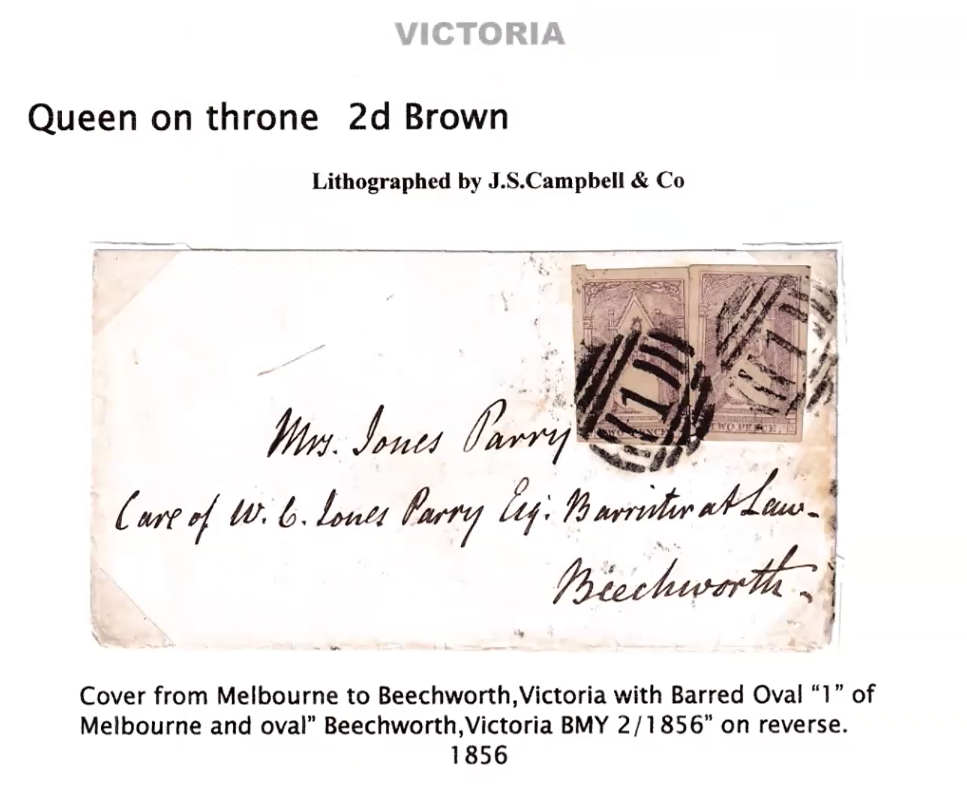 VICTORIA
Queen on throne 2d Brown
Lithographed by J.S.Campbell & Co
1
1
TWO PENCE
TWO PENCE
Mrs. Jones Parry
Care of W. C. Jones Parry Esq: Barrister at Law-
Beechworth.
Cover from Melbourne to Beechworth,Victoria with Barred Oval “1” of
Melbourne and oval” Beechworth,Victoria BMY 2/1856” on reverse.
1856